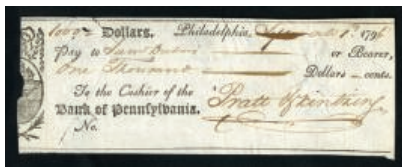 1000 Dollars. Philadelphia, 1796
Pay to or Bearer,
One Thousand Dollars cents.
To the Cashier of the
Bank of Pennsylvania. Pratt & Kintzing
No.